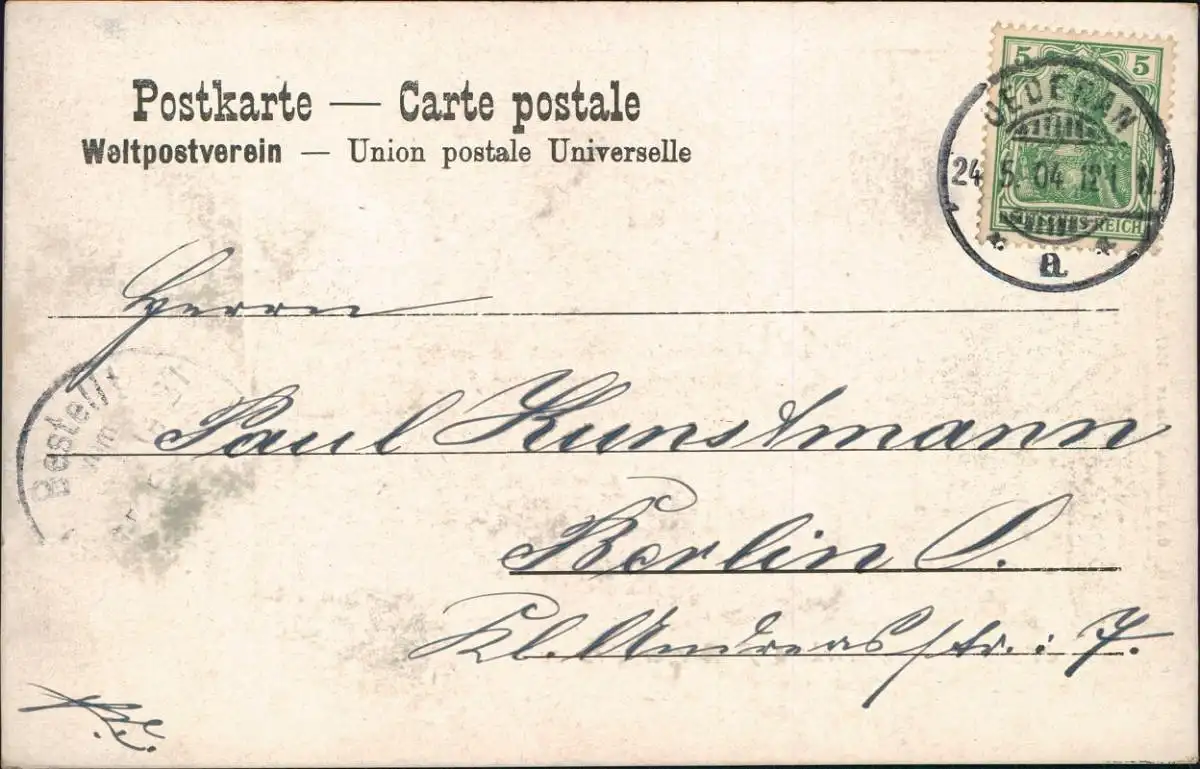 Postkarte — Carte postale
Weltpostverein — Union postale Universelle
5 5
OEDERAN
24. 5. 04. 12-1 N.
REICH
* a. *
Herrn
Paul Kunstmann
Bestellt
Berlin O.
Kl. Andreasstr.: 7.